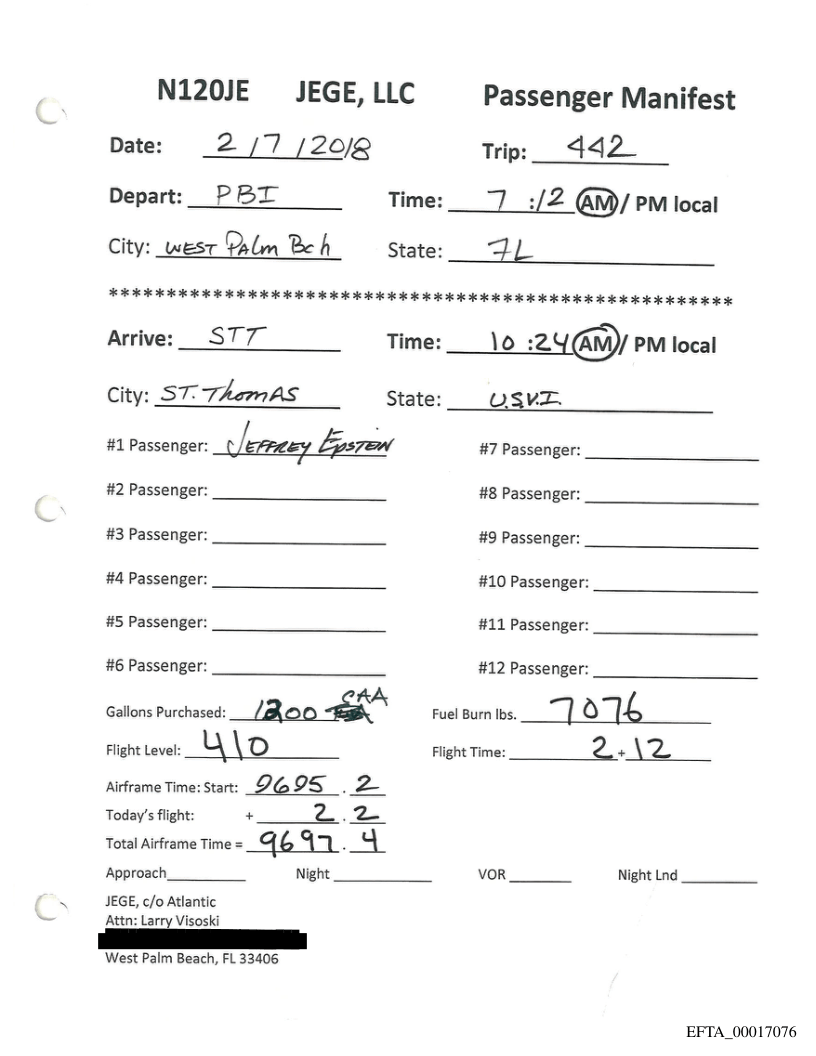 N120JE JEGE, LLC Passenger Manifest
Date: 2/7/2018 Trip: 442
Depart: PBI Time: 7:12 AM / PM local
City: WEST PALM Bch State: FL
******************************************************
Arrive: STT Time: 10:24 AM / PM local
City: ST. THOMAS State: U.S.V.I.
#1 Passenger: JEFFREY EPSTEIN #7 Passenger:
#2 Passenger: #8 Passenger:
#3 Passenger: #9 Passenger:
#4 Passenger: #10 Passenger:
#5 Passenger: #11 Passenger:
#6 Passenger: #12 Passenger:
Gallons Purchased: 1200 CAA Fuel Burn lbs. 7076
Flight Level: 410 Flight Time: 2+12
Airframe Time: Start: 9695.2
Today's flight: + 2.2
Total Airframe Time = 9697.4
Approach Night VOR Night Lnd
JEGE, c/o Atlantic
Attn: Larry Visoski
West Palm Beach, FL 33406
EFTA_00017076